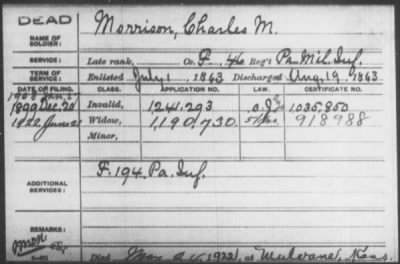 DEAD
NAME OF SOLDIER:
Morrison, Charles M.
SERVICE:
Late rank, Co. F. 46 Reg't Pa. Mil. Inf.
TERM OF SERVICE:
Enlisted July 1, 1863 Discharged Aug. 19, 1863
DATE OF FILING. CLASS. APPLICATION NO. LAW. CERTIFICATE NO.
1899 Dec. 20 Invalid, 1,241,293 1,035,850
1922 June Widow, 1,190,730 918988
Minor,
ADDITIONAL SERVICES:
F. 194. Pa. Inf.
REMARKS:
Died 1922, at Mulvane, Kans.